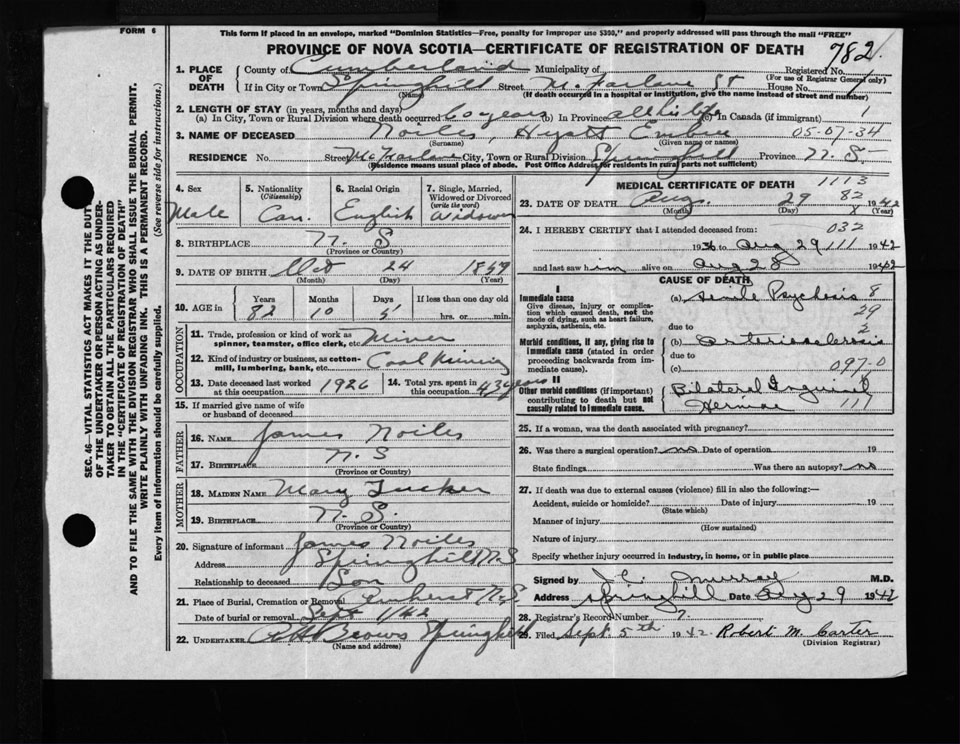 FORM 6
This form if placed in an envelope, marked "Dominion Statistics—Free, penalty for improper use $300," and properly addressed will pass through the mail "FREE"
PROVINCE OF NOVA SCOTIA—CERTIFICATE OF REGISTRATION OF DEATH
782
1. PLACE OF DEATH
County of Cumberland Municipality of Registered No.
(For use of Registrar General only)
If in City or Town Springhill Street McFarlane St House No.
(Name) (If death occurred in a hospital or institution, give the name instead of street and number)
2. LENGTH OF STAY (in years, months and days)
(a) In City, Town or Rural Division where death occurred 60 years (b) In Province all his life (c) In Canada (if immigrant) 1
3. NAME OF DECEASED Noiles, Hyatt Embree 05-07-34
(Surname) (Given name or names)
RESIDENCE No. Street McFarlane City, Town or Rural Division Springhill Province N. S.
(Residence means usual place of abode. Post Office Address for residents in rural parts not sufficient)
4. Sex Male
5. Nationality (Citizenship) Can.
6. Racial Origin English
7. Single, Married, Widowed or Divorced (write the word) Widower
8. BIRTHPLACE N. S
(Province or Country)
9. DATE OF BIRTH Oct 24 1859
(Month) (Day) (Year)
10. AGE in Years 82 Months 10 Days 5 If less than one day old
hrs. or min.
OCCUPATION
11. Trade, profession or kind of work as spinner, teamster, office clerk, etc. Miner
12. Kind of industry or business, as cotton-mill, lumbering, bank, etc. Coal Mining
13. Date deceased last worked at this occupation 1926
14. Total yrs. spent in this occupation 43 years
15. If married give name of wife or husband of deceased
FATHER
16. NAME James Noiles
17. BIRTHPLACE N. S
(Province or Country)
MOTHER
18. MAIDEN NAME Mary Tucker
19. BIRTHPLACE N. S.
(Province or Country)
20. Signature of informant James Noiles
Address Springhill N.S
Relationship to deceased Son
21. Place of Burial, Cremation or Removal Amherst N.S.
Date of burial or removal Sept 1/42
22. UNDERTAKER Brown Springhill
(Name and address)
MEDICAL CERTIFICATE OF DEATH 1113
23. DATE OF DEATH Aug. 29 82 1942
(Month) (Day) (Year)
24. I HEREBY CERTIFY that I attended deceased from: 032
1936 to Aug 29 111 1942
and last saw him alive on Aug 28 1942
CAUSE OF DEATH
I
Immediate cause
Give disease, injury or complication which caused death, not the mode of dying, such as heart failure, asphyxia, asthenia, etc.
(a) Senile Psychosis 8
29
due to 2
Morbid conditions, if any, giving rise to immediate cause (stated in order proceeding backwards from immediate cause).
(b) Arteriosclerosis
due to
(c) 097-0
II
Other morbid conditions (if important) contributing to death but not causally related to immediate cause.
Bilateral Inguinal
Herniae 111
25. If a woman, was the death associated with pregnancy?
26. Was there a surgical operation? no Date of operation 19
State findings Was there an autopsy? no
27. If death was due to external causes (violence) fill in also the following:—
Accident, suicide or homicide? Date of injury 19
(State which)
Manner of injury
(How sustained)
Nature of injury
Specify whether injury occurred in industry, in home, or in public place
Signed by J.C. Murray M.D.
Address Springhill Date Aug 29 1942
28. Registrar's Record Number 7.
29. Filed Sept. 5th 1942. Robert M. Carter
(Division Registrar)
SEC. 46—VITAL STATISTICS ACT MAKES IT THE DUTY
OF THE UNDERTAKER OR PERSON ACTING AS UNDER-
TAKER TO OBTAIN ALL THE PARTICULARS REQUIRED
IN THE "CERTIFICATE OF REGISTRATION OF DEATH"
AND TO FILE THE SAME WITH THE DIVISION REGISTRAR WHO SHALL ISSUE THE BURIAL PERMIT.
WRITE PLAINLY WITH UNFADING INK. THIS IS A PERMANENT RECORD.
Every item of information should be carefully supplied. (See reverse side for instructions.)